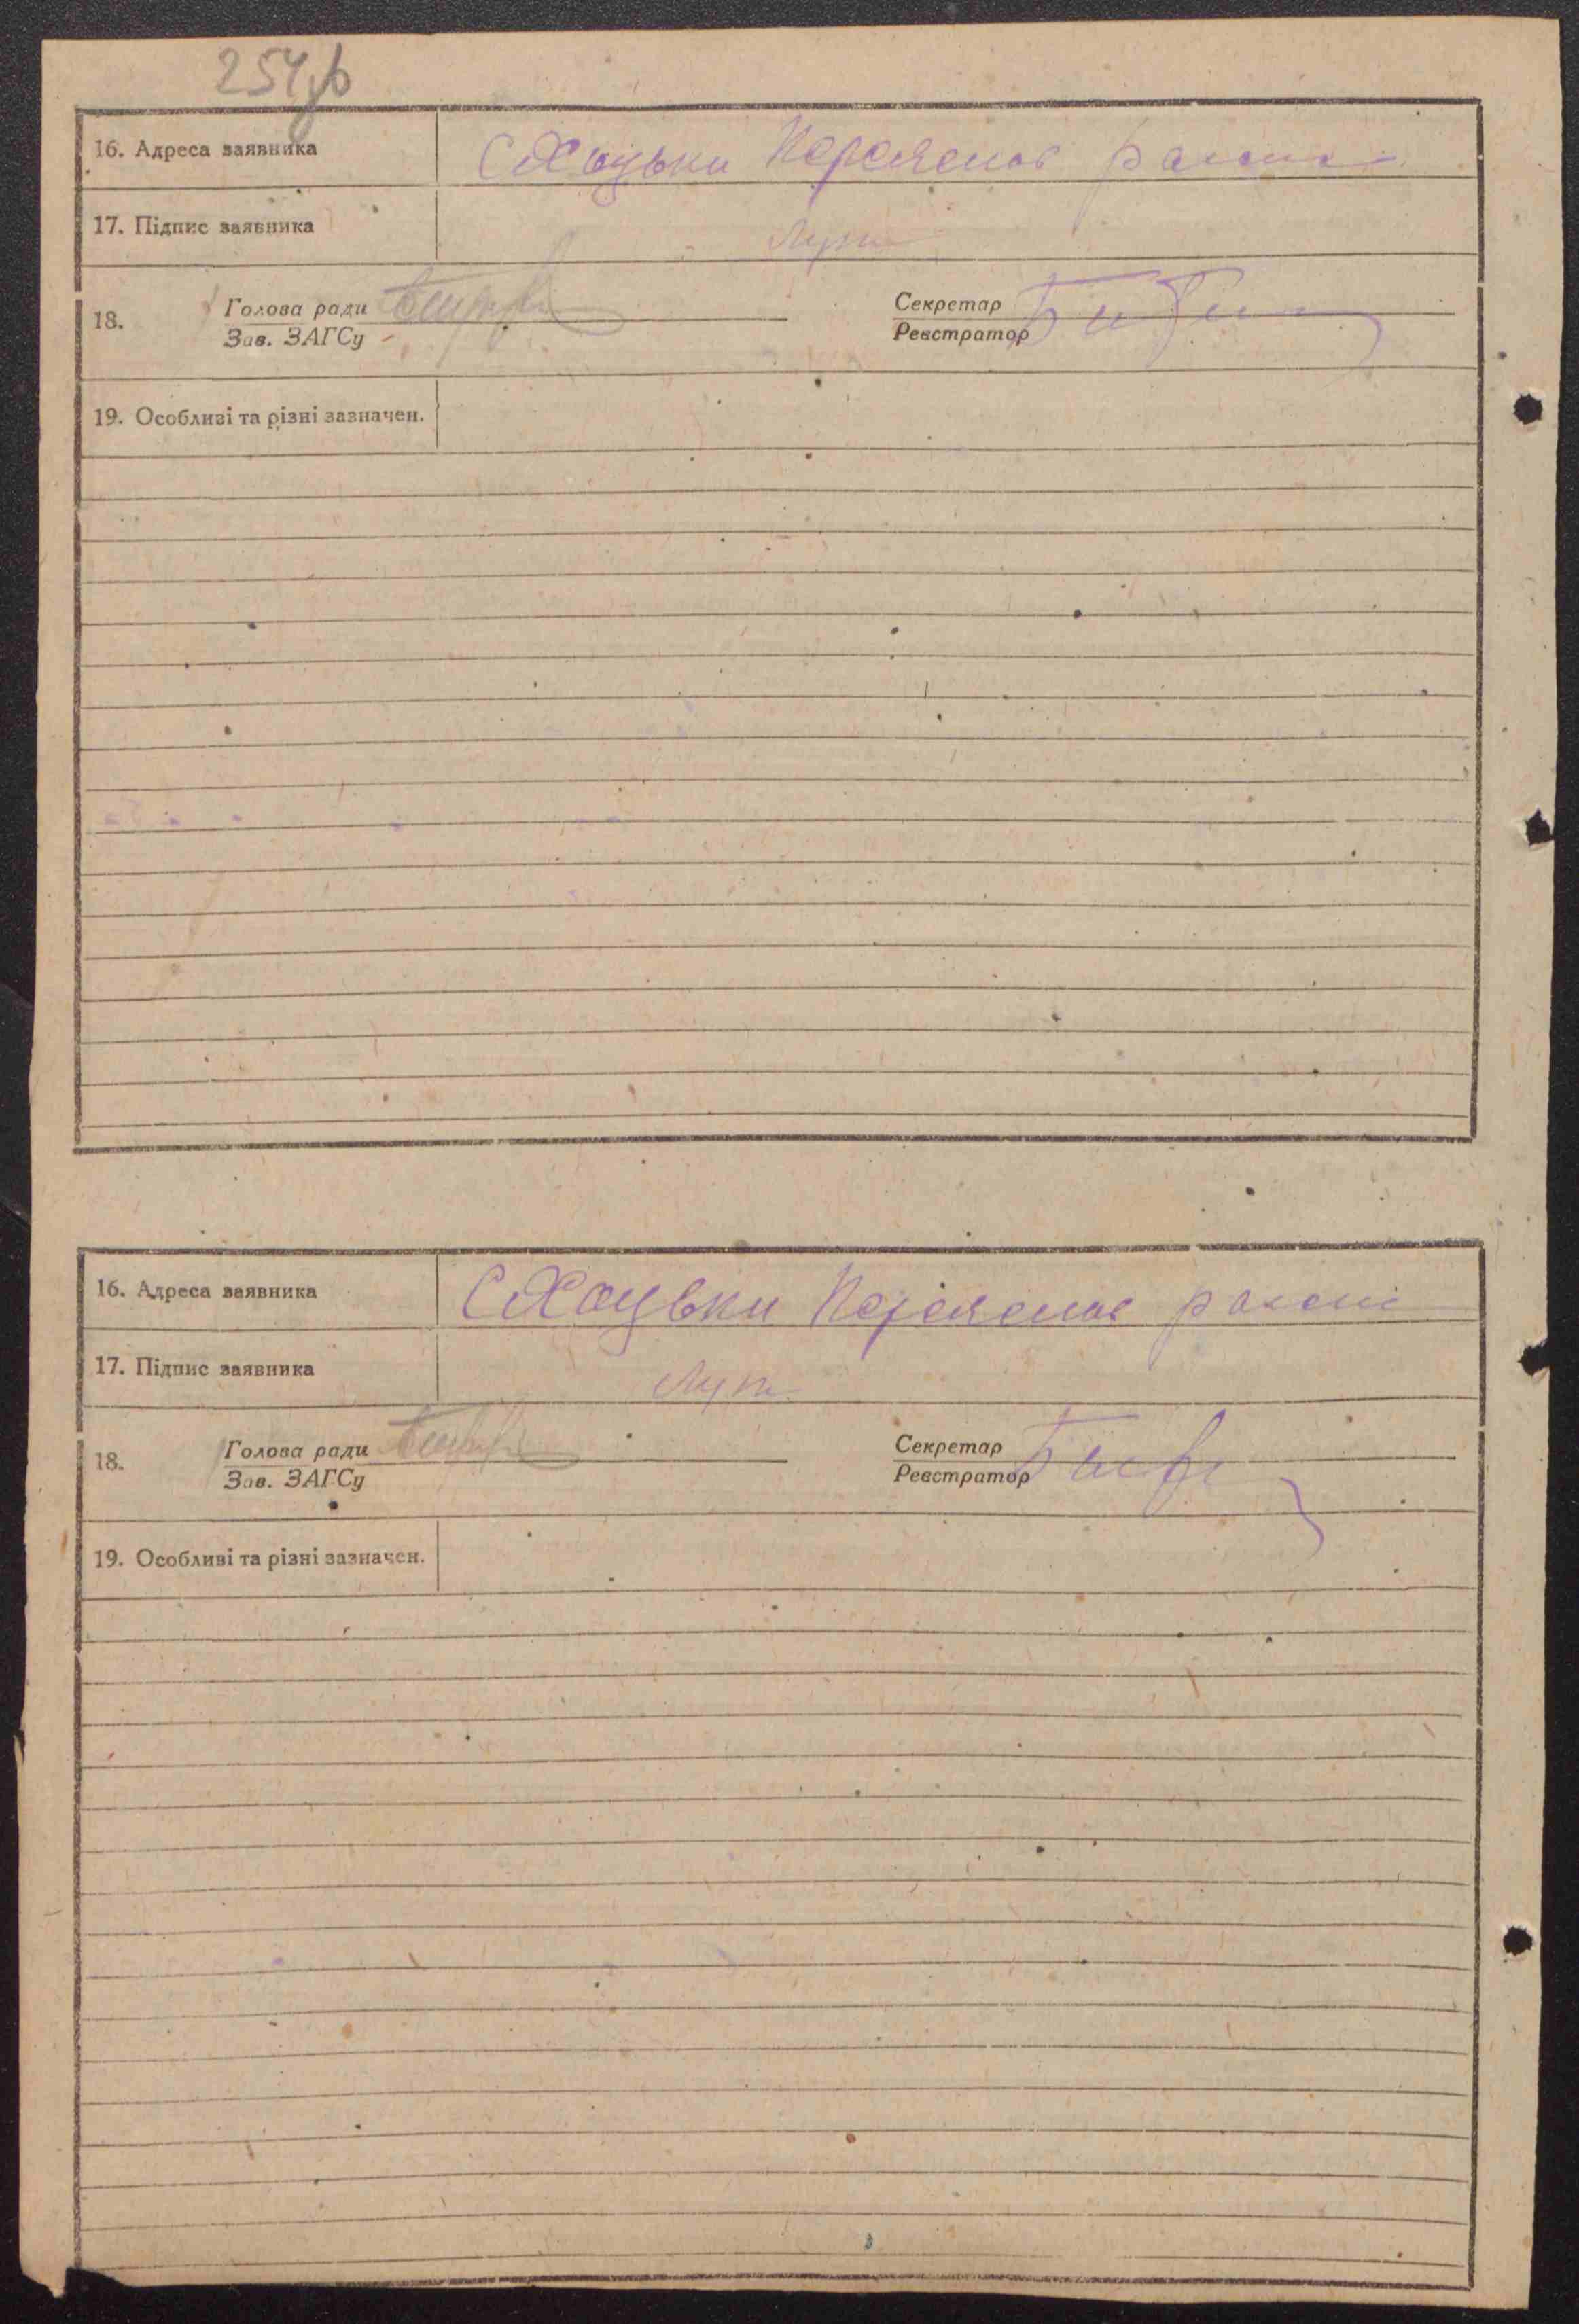 254зв
16. Адреса заявника С Хоцьки Переяслав район
17. Підпис заявника
18. Голова ради Секретар
Зав. ЗАГСу Реєстратор
19. Особливі та різні зазначен.
16. Адреса заявника С Хоцьки Переяслав район
17. Підпис заявника
18. Голова ради Секретар
Зав. ЗАГСу Реєстратор
19. Особливі та різні зазначен.